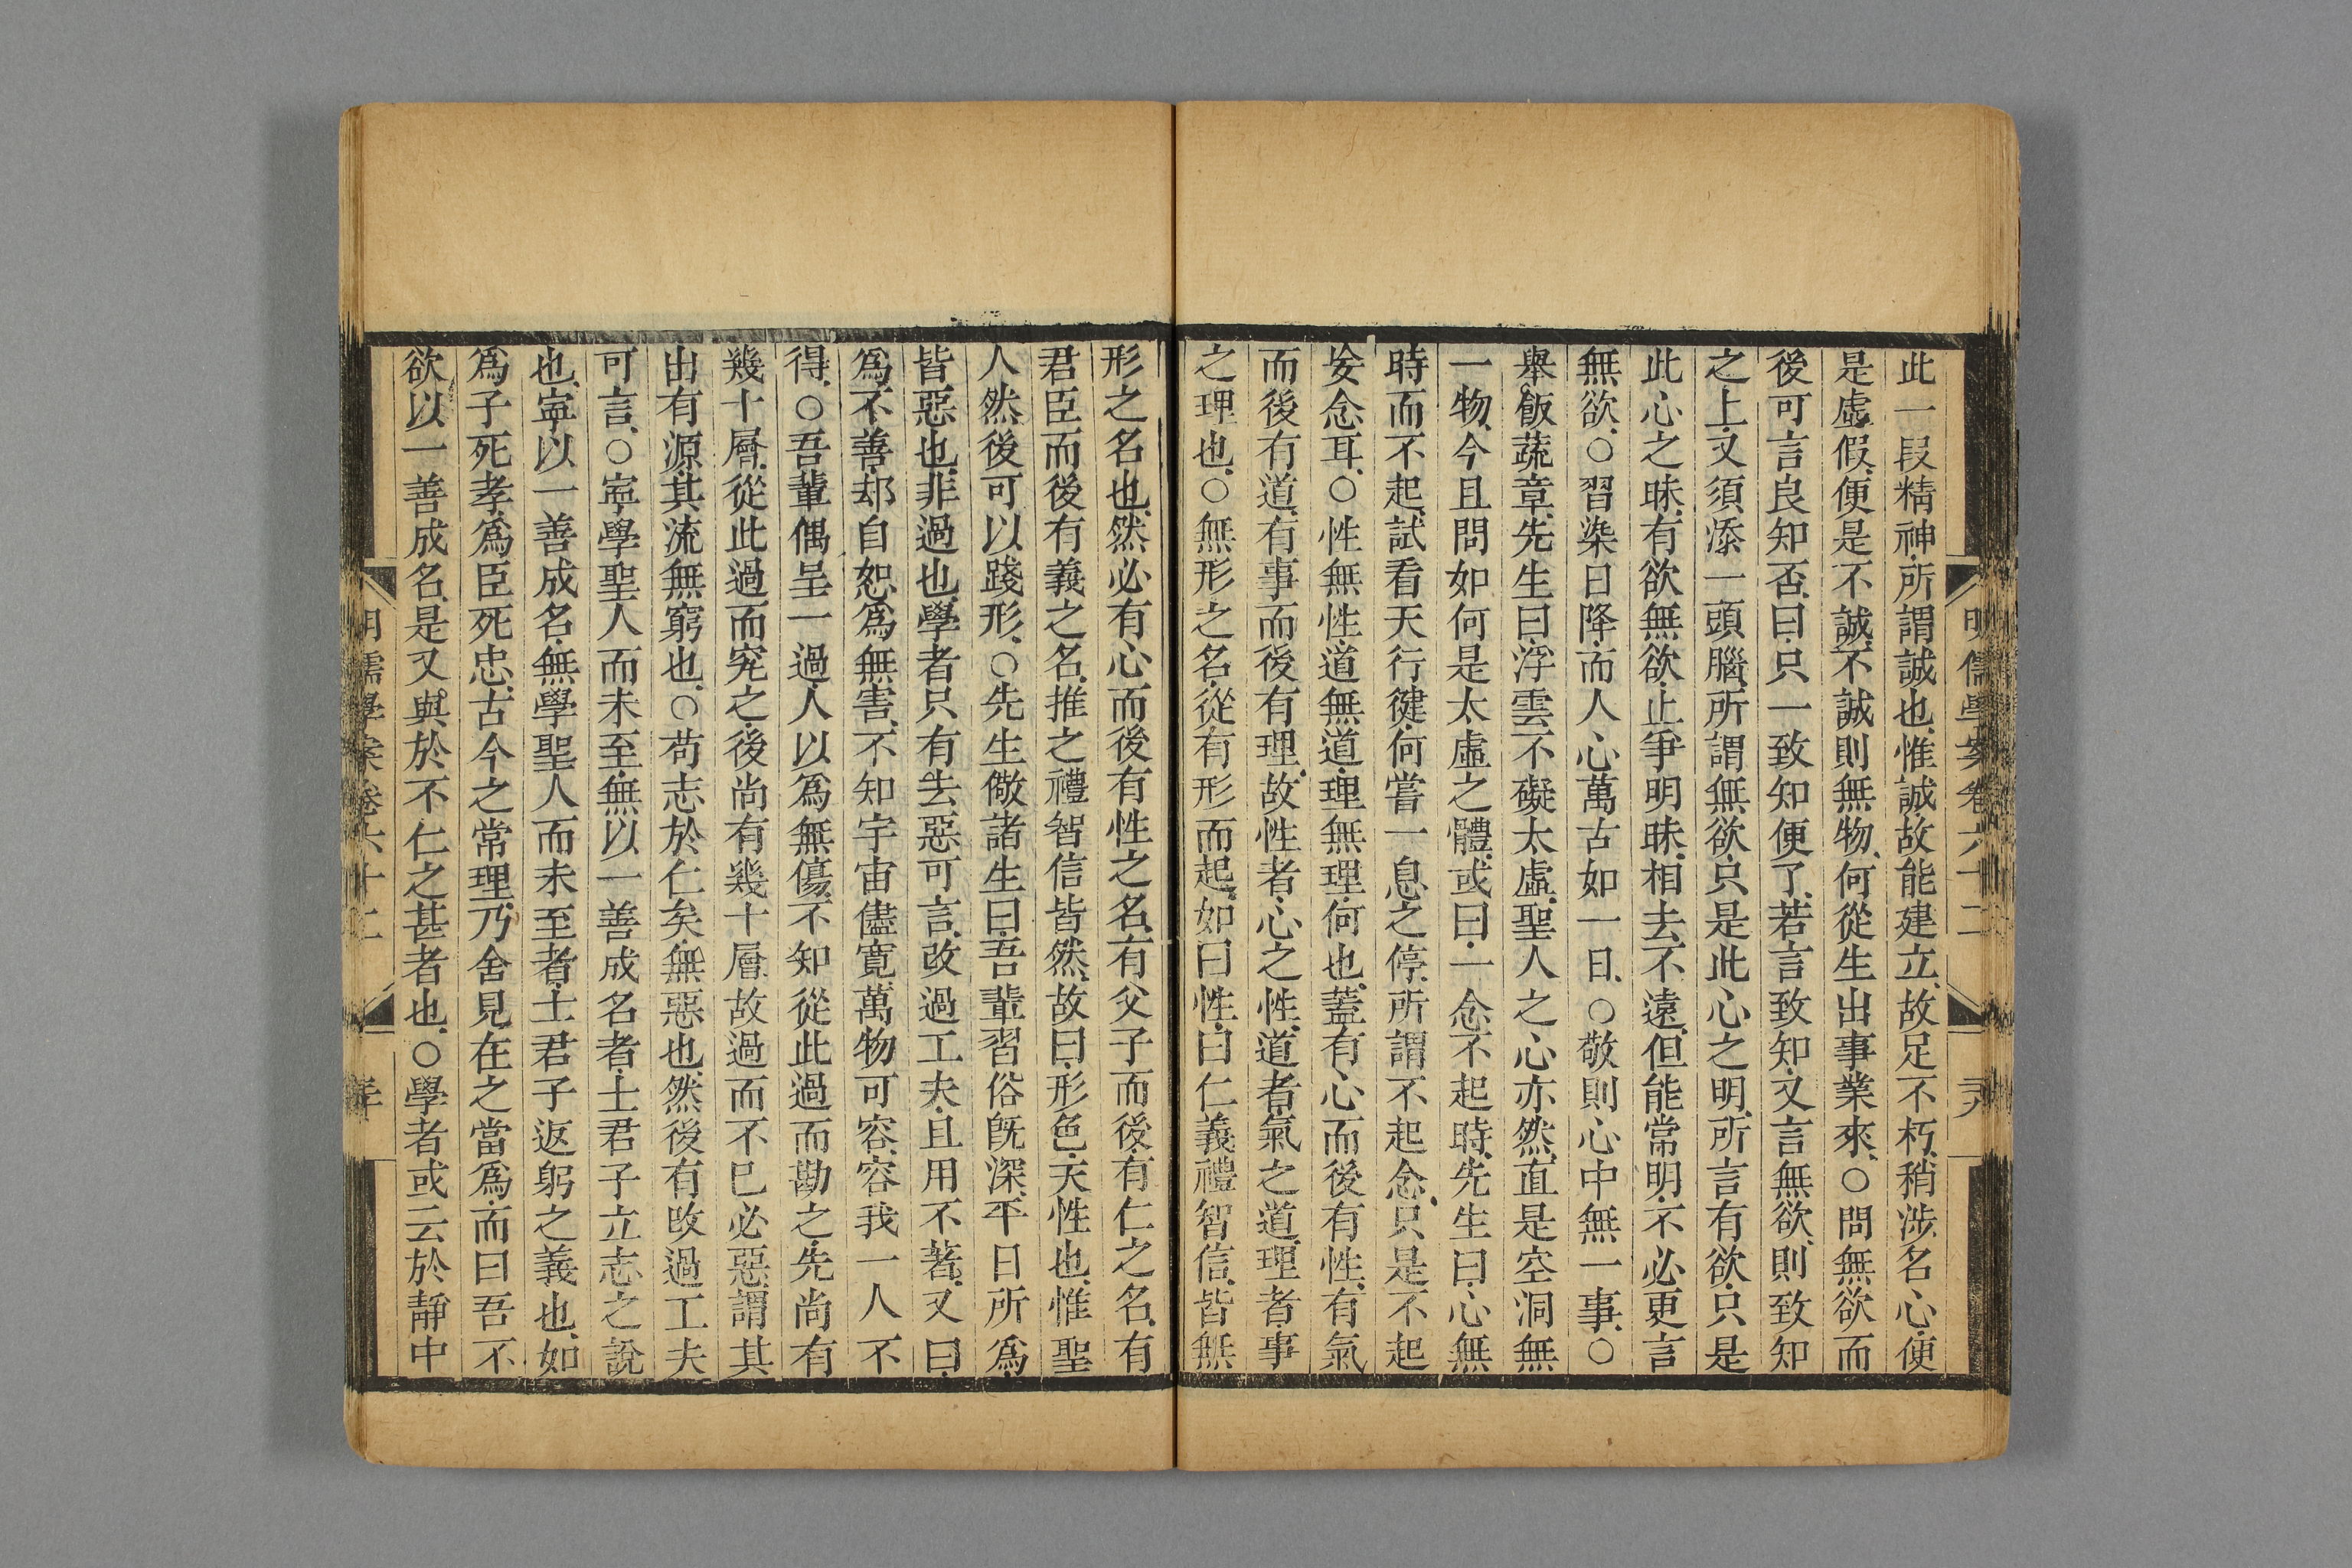 明儒學案卷六十二
此一段精神、所謂誠也、惟誠、故能建立、故足不朽、稍涉名心、便
是虛假、便是不誠、不誠則無物、何從生出事業來、○問無欲而
後可言良知否、曰、只一致知便了、若言致知、又言無欲、則致知
之上、又須添一頭腦、所謂無欲、只是此心之明、所言有欲、只是
此心之昧、有欲無欲、止爭明昧、相去不遠、但能常明、不必更言
無欲、○習染日降、而人心萬古如一日、○敬則心中無一事、○
舉飯蔬章、先生曰、浮雲不礙太虛、聖人之心亦然、直是空洞無
一物、今且問如何是太虛之體、或曰、一念不起時、先生曰、心無
時而不起、試看天行健、何嘗一息之停、所謂不起念、只是不起
妄念耳、○性無性、道無道、理無理、何也、蓋有心而後有性、有氣
而後有道、有事而後有理、故性者、心之性、道者、氣之道、理者、事
之理也、○無形之名、從有形而起、如曰性、曰仁義禮智信、皆無
形之名也、然必有心而後有性之名、有父子而後有仁之名、有
君臣而後有義之名、推之禮智信皆然、故曰、形色、天性也、惟聖
人然後可以踐形、○先生儆諸生曰、吾輩習俗旣深、平日所爲、
皆惡也、非過也、學者只有去惡可言、改過工夫、且用不著、又曰、
爲不善、却自恕爲無害、不知宇宙儘寛、萬物可容、容我一人不
得、○吾輩偶呈一過、人以爲無傷、不知從此過而勘之、先尚有
幾十層、從此過而究之、後尚有幾十層、故過而不已必惡、謂其
出有源、其流無窮也、○苟志於仁矣、無惡也、然後有改過工夫
可言、○寧學聖人而未至、無以一善成名者、士君子立志之說
也、寧以一善成名、無學聖人而未至者、士君子返躬之義也、如
爲子死孝、爲臣死忠、古今之常理、乃舍見在之當爲、而曰吾不
欲以一善成名、是又與於不仁之甚者也、○學者或云於靜中
明儒學案卷六十二